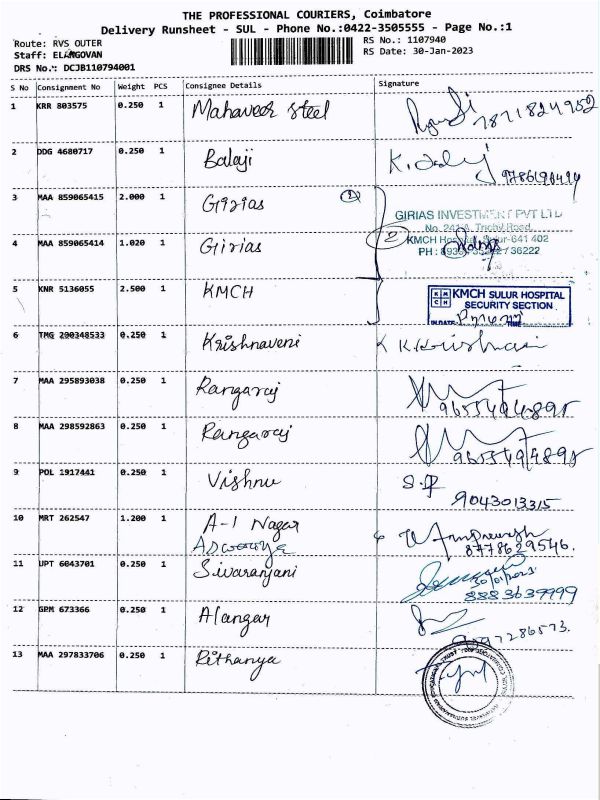 THE PROFESSIONAL COURIERS, Coimbatore
Delivery Runsheet - SUL - Phone No.:0422-3505555 - Page No.:1
Route: RVS OUTER RS No.: 1107940
Staff: ELANGOVAN RS Date: 30-Jan-2023
DRS No.: DCJB110794001
S No Consignment No Weight PCS Consignee Details Signature
1 KRR 803575 0.250 1 Mahaveer steel 7871824952
2 DDG 4680717 0.250 1 Balaji
3 MAA 859065415 2.000 1 Girias 1
GIRIAS INVESTMENT PVT LTD
No. 241-A, Trichy Road,
4 MAA 859065414 1.020 1 Girias 2 KMCH Hospital, Sulur-641 402
5 KNR 5136055 2.500 1 KMCH KMCH SULUR HOSPITAL
SECURITY SECTION
IN DATE TIME
6 TMG 290348533 0.250 1 Krishnaveni
7 MAA 295893038 0.250 1 Rangaraj
8 MAA 298592863 0.250 1 Rangaraj
9 POL 1917441 0.250 1 Vishnu 9043013315
10 MRT 262547 1.200 1 A-1 Nagar 8778629546.
11 UPT 6043701 0.250 1 Sivaranjani 30/01/2023
8883639999
12 GPM 673366 0.250 1 Alangar
13 MAA 297833706 0.250 1 Rithanya